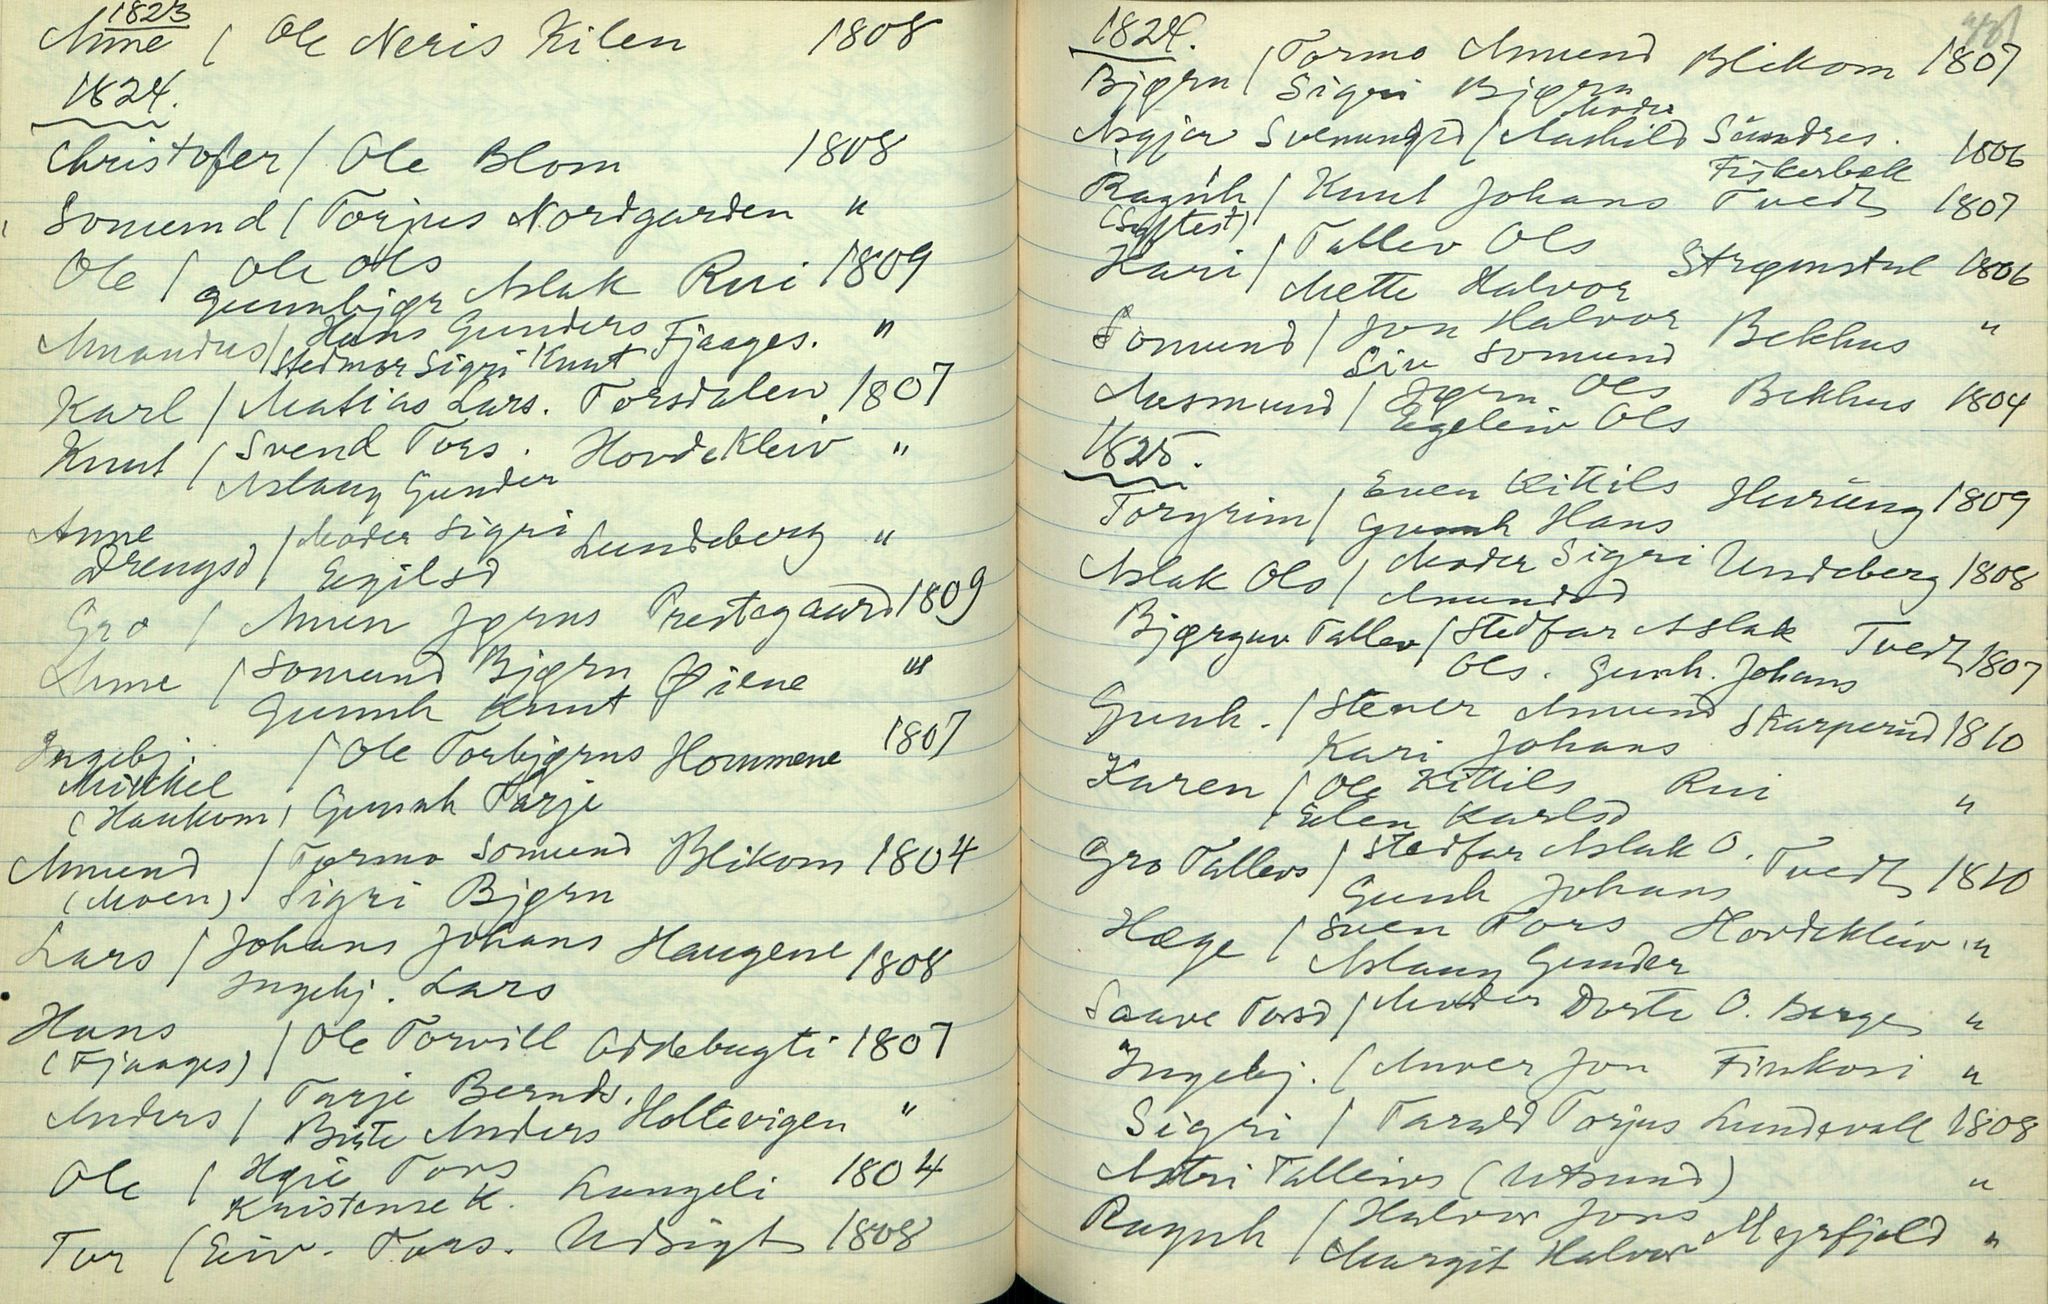 1823
Anne / Ole Neris Kilen 1808
1824.
Christofer / Ole Blom 1808
Somund / Torjus Nordgarden "
Ole / Ole Ols
Gunnbjør Aslak Rui 1809
Amandus / Hans Gunders Fjaages. "
Stedmor Sigri Knut
Karl / Matias Lars. Torsdalen 1807
Knut / Svend Tors. Hovdekleiv "
Aslaug Gunder
Anne / Moder Sigri Lundeberg "
Drengsd Egilsd
Gro / Amen Jørns Prestegaard 1809
Anne / Somund Bjørn Øiene "
Gunnh Knut
Ingebj. / Ole Torbjørns Hommene 1807
Mikkel
(Haukom) Gunnh Tarje
Amund / Tormo Somund Blikom 1804
(Moen) Sigri Bjørn
Lars / Johans Johans Haugene 1808
Ingebj. Lars
Hans / Ole Torvill Oddebugti 1807
(Fjaages)
Anders / Tarje Bernds. Holtevigen "
Birte Anders
Ole / Høie Tors Langeli 1804
Kristense K.
Tor / Eiv. Tors. Udsigt 1808
1824.
Bjørn / Tormo Amund Blikom 1807
Sigri Bjørn
Moder
Asgjer Svenungsd / Mathild Søndres. 1806
Fiskerbekk
Ragnh / Knut Johans Tvedt 1807
(Syftest)
Kari / Tallev Ols Strømstul 1806
Mette Halvor
Somund / Jon Halvor Bekhus "
Siv Somund
Aasmund / Jørn Ols Bekhus 1804
Egeleiv Ols
1825.
Torgrim / Even Kittils Hurång 1809
Gunnh Hans
Aslak Ols / Moder Sigri Undeberg 1808
Amundsd
Bjørguv Tallev / Stedfar Aslak Tvedt 1807
Ols. Gunh. Johans
Gunh. / Stener Amund Skarperud 1810
Kari Johans
Karen / Ole Kittils Rui "
Elen Karlsd
Gro Tallevs / Stedfar Aslak O. Tvedt 1810
Gunh Johans
Hæge / Sven Tors Hovdekleiv "
Aslaug Gunder
Saave Torsd / Moder Dorte O. Berge "
Ingebj. / Anver Jon Finkosi "
Sigri / Tarald Torjus Lundevall 1808
Astri Talleivs (Utsund) "
Ragnh / Halvor Jons Myrfjeld "
Margit Halvor